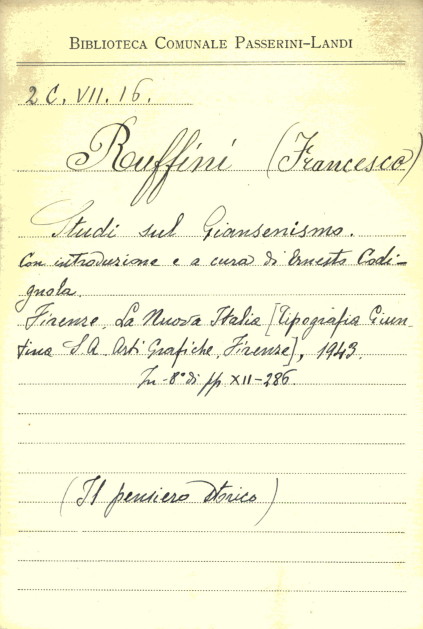 BIBLIOTECA COMUNALE PASSERINI-LANDI
2 C. VII. 16.
Ruffini (Francesco)
Studi sul Giansenismo.
Con introduzione e a cura di Ernesto Codi-
gnola.
Firenze, La Nuova Italia [Tipografia Giun-
tina S.A. Arti Grafiche, Firenze], 1943.
In-8° di pp XII-286.
(Il pensiero storico)